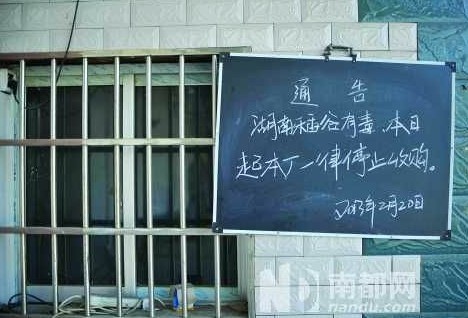 通告
湖南稻谷有毒.本日
起本厂一律停止收购。
2013年2月20日
南都网
nandu.com